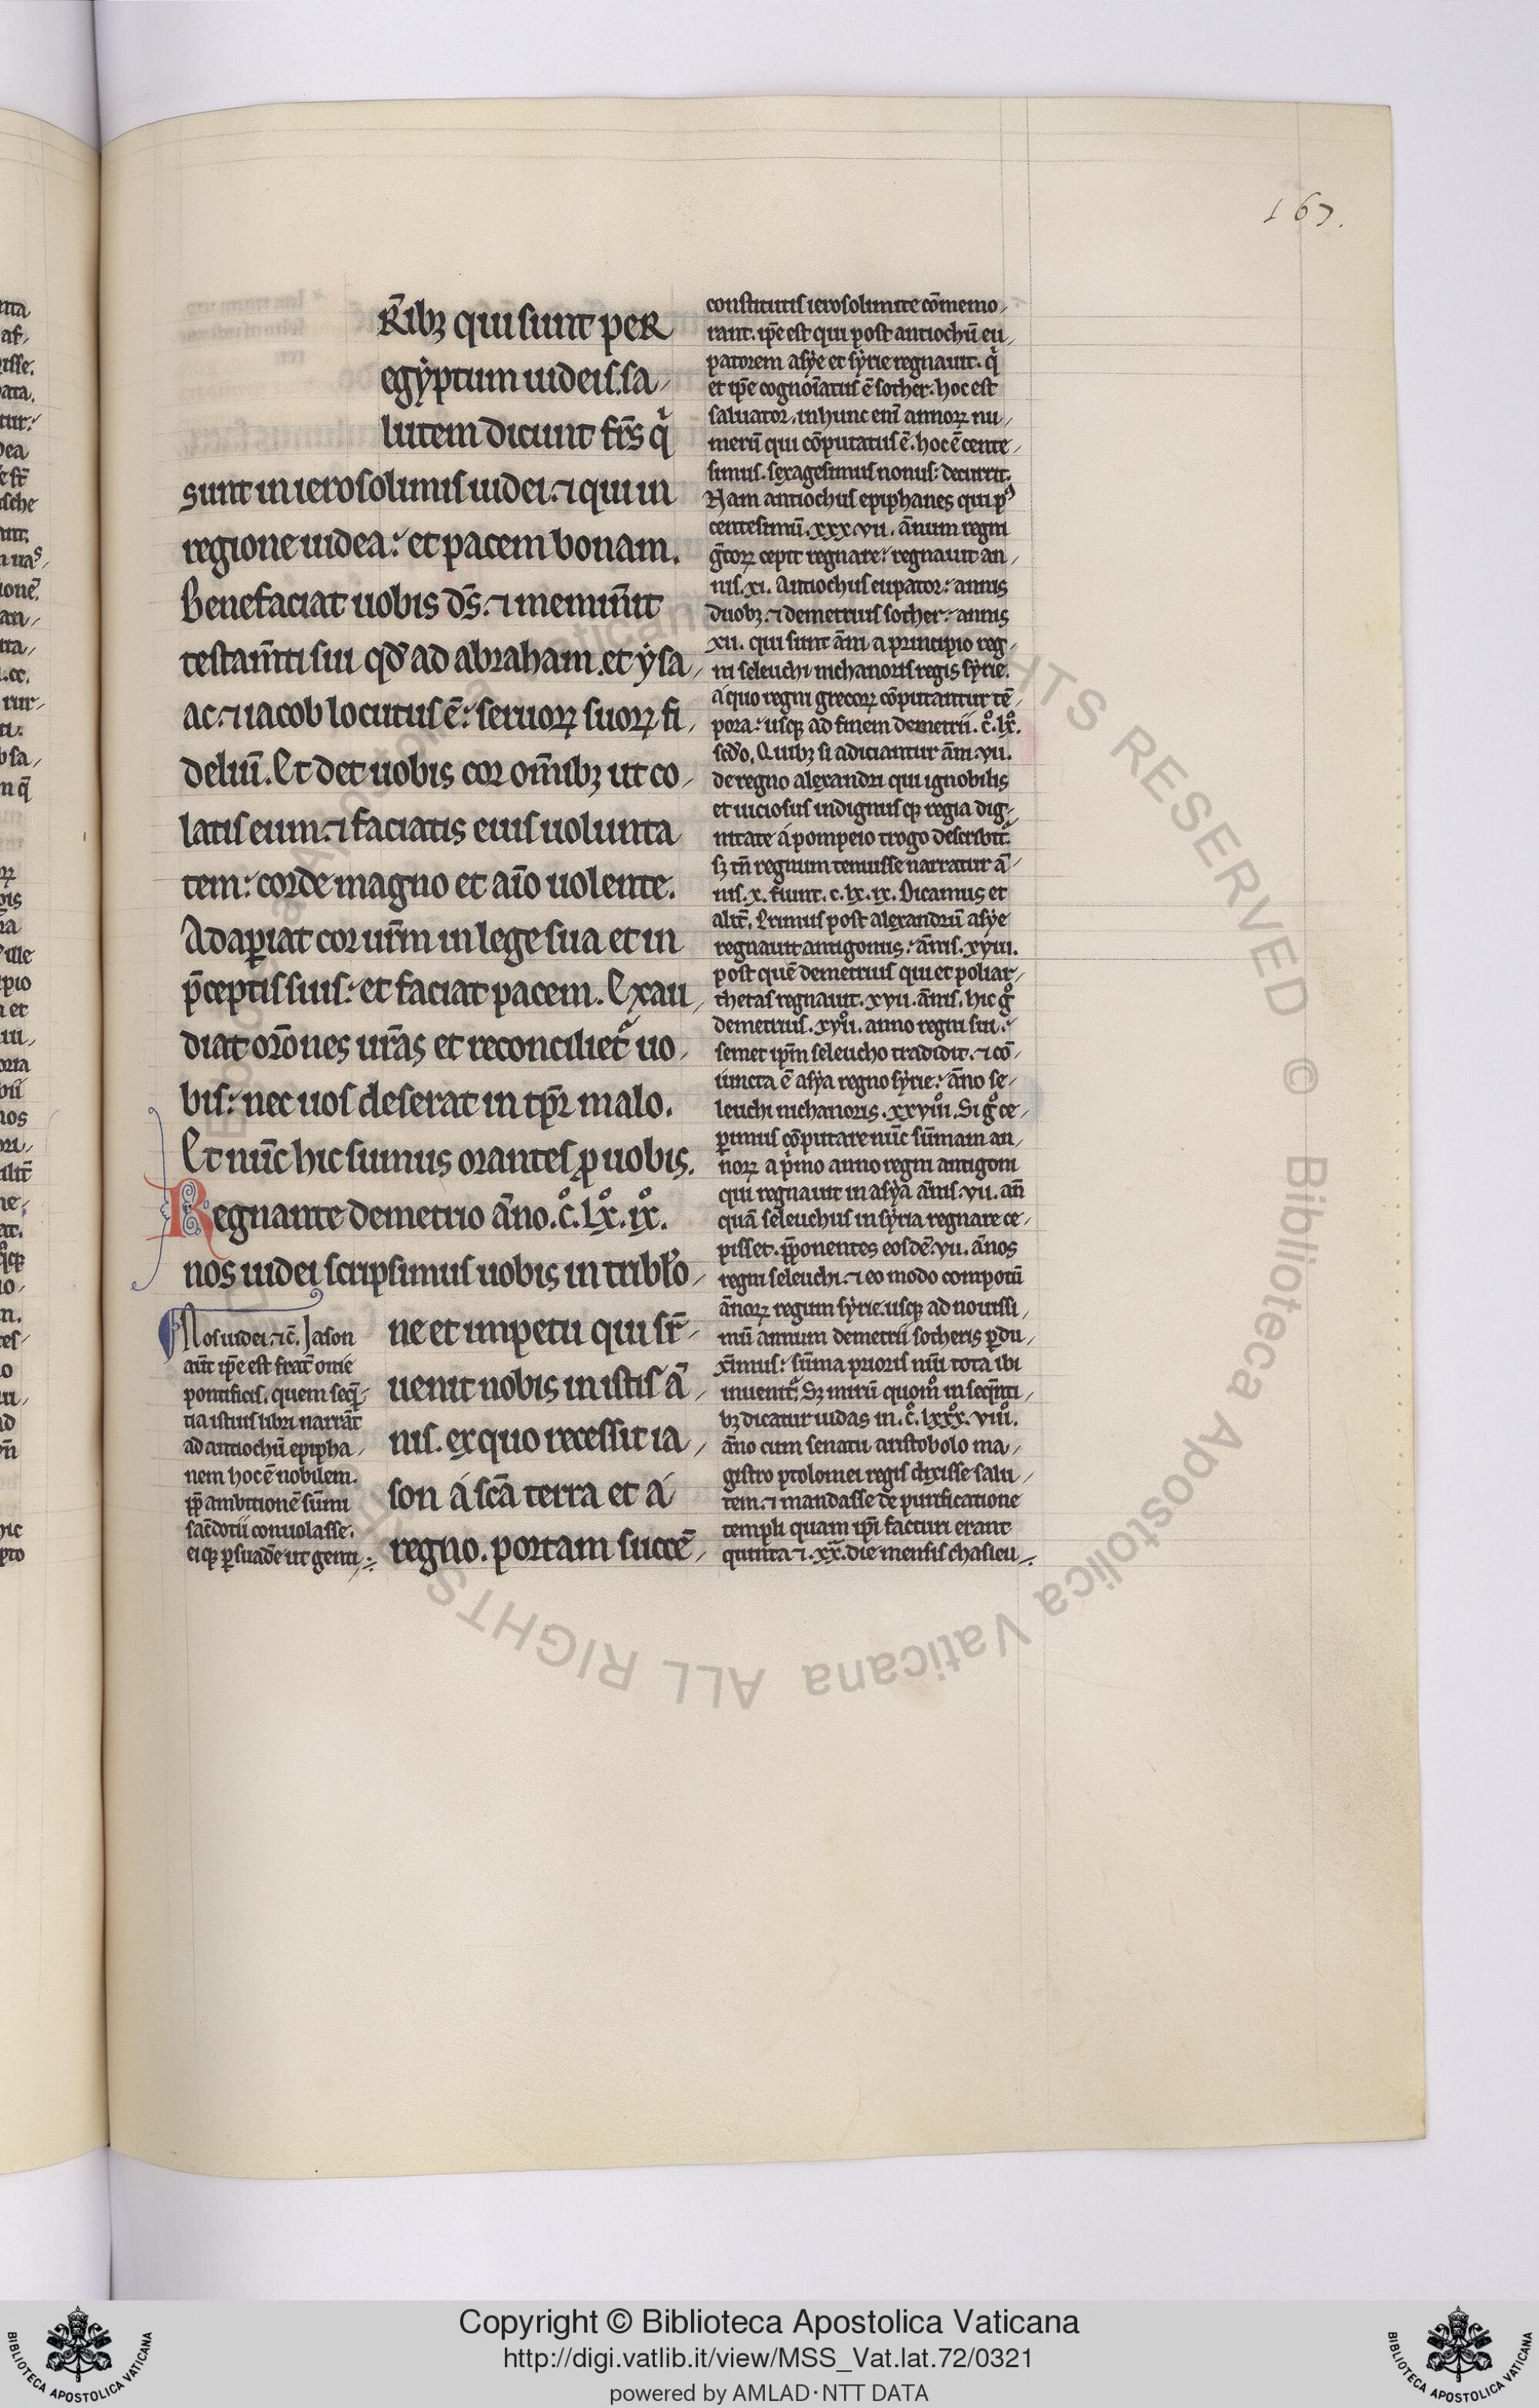 167.
R̄ibꝫ qui sunt per
egẏptum iudeis. sa-
lutem dicunt fr̄s q̇
sunt in ierosolimis iudei. ⁊ qui in
regione iudea. et pacem bonam.
Benefaciat uobis d̄s. ⁊ memin̄it
testam̄ti sui qd̕ ad abraham. et ẏsa-
ac. ⁊ iacob locutus ē. seruoꝝ suoꝝ fi-
deliū. Et det uobis cor om̄ibꝫ ut co-
latis eum. ⁊ faciatis eius uolunta
tem. corde magno et aīo uolente.
Adaꝑiat cor ur̄m in lege sua et in
p̄ceptis suis. et faciat pacem. Exau-
diat or̄ones ur̄as et reconciliet᷑ uo-
bis. nec uos deserat in tp̄r malo.
Et nūc hic sumus orantes ꝓ uobis.
Regnante demetrio āno. c̊. lx̊. ix̊.
nos iudei scripsimus uobis in tribl̕o-
ne et impetu qui sr̄-
uenit nobis in istis ā-
nis. ex quo recessit ia-
son á scā terra et á
regno. portam succē-
Nos iudei. ⁊c̄. Iason
aūt ip̄e est frat̄ onie
pontificis. quem seq̄-
tia istius libri narrāt
ad antiochū epipha-
nem hoc ē nobilem.
ꝓp̄ ambitionē sūmi
sac̄dotii conuolasse.
eiqꝫ ꝑsuadē ut genti-
constitutis ierosolimite cōmemo-
rant. ip̄e est qui post antiochū eu-
patorem asẏe et sẏrie regnauit. q̇
et ip̄e cognoīatus ē sother. hoc est
saluator. in hunc enī annoꝝ nu-
merū qui cōputatus ē. hoc ē cente-
simus. sexagesimus nonus. decurrit.
Nam antiochus epiphanes qui pꝰ
centesimū. xxx. vii. ānum regni
ḡcoꝝ cepit regnare. regnauit an-
nis. xi. Antiochus eupator. annis
duobꝫ. ⁊ demetrius sother. annis
xii. qui sunt āni a principio reg-
ni seleuchi nichanoris regis sẏrie.
á quo regni grecoꝝ cōputantur tē-
pora. usqꝫ ad finem demetrii. c̊. lx̊.
scd̕o. Quibꝫ si adiciantur āni. vii.
de regno alexandri qui ignobilis
et uiciosus indignusqꝫ regia dig-
nitate á pompeio trogo describit᷑.
sꝫ tn̄ regnum tenuisse narratur ā-
nis. x. fiunt. c. lx. ix. Dicamus et
alit̄. Primus post alexandrū asẏe
regnauit antigonus. ānis. xviii.
post quē demetrius qui et poliar-
chetas regnauit. xvii. ānis. hic g̊
demetrius. xvii̊. anno regni sui.
semet ip̄m seleucho tradidit. ⁊ cō-
iuncta ē asẏa regno sẏrie. āno se-
leuchi nichanoris. xxviii̊. Si g̊ ce-
ꝑimus cōputare nūc sūmam an-
noꝝ a pͥmo anno regni antigoni
qui regnauit in asẏa ānis. vii. an̄
quā seleuchus in sẏria regnare ce-
pisset. p̄ponentes eosdē. vii. ānos
regni seleuchi. ⁊ eo modo compotū
ānoꝝ regum sẏrie. usqꝫ ad nouissi-
mū annum demetrii sotheris ꝑdu-
xīmus. sūma prioris nūi tota ibi
inuenit᷑. Sꝫ mirū quom̊ in seq̄nti-
bꝫ dicatur iudas in. c̊. lxxx̊. viii̊.
āno cum senatu aristobolo ma-
gistro ptolomei regis dixisse salu-
tem. ⁊ mandasse de purificatione
templi quam ip̄i facturi erant
quinta ⁊. xx̄. die mensis chasleu-
Copyright © Biblioteca Apostolica Vaticana
http://digi.vatlib.it/view/MSS_Vat.lat.72/0321
powered by AMLAD·NTT DATA